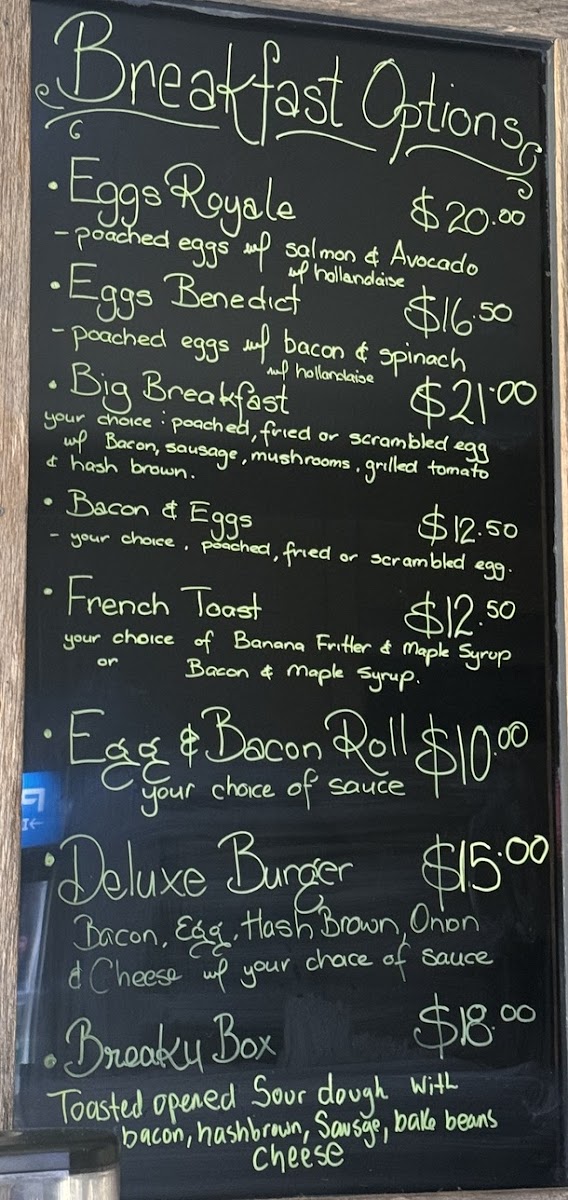 Breakfast Options
• Eggs Royale $20.00
- poached eggs w/ salmon & Avocado
w/ hollandaise
• Eggs Benedict $16.50
- poached eggs w/ bacon & spinach
w/ hollandaise
• Big Breakfast $21.00
your choice : poached, fried or scrambled egg
w/ Bacon, sausage, mushrooms, grilled tomato
& hash brown.
• Bacon & Eggs $12.50
- your choice, poached, fried or scrambled egg.
• French Toast $12.50
your choice of Banana Fritter & Maple Syrup
or Bacon & Maple Syrup.
• Egg & Bacon Roll $10.00
your choice of sauce
• Deluxe Burger $15.00
Bacon, Egg, Hash Brown, Onion
& Cheese w/ your choice of sauce
• Breaky Box $18.00
Toasted opened Sour dough with
bacon, hashbrown, Sausge, bake beans
cheese